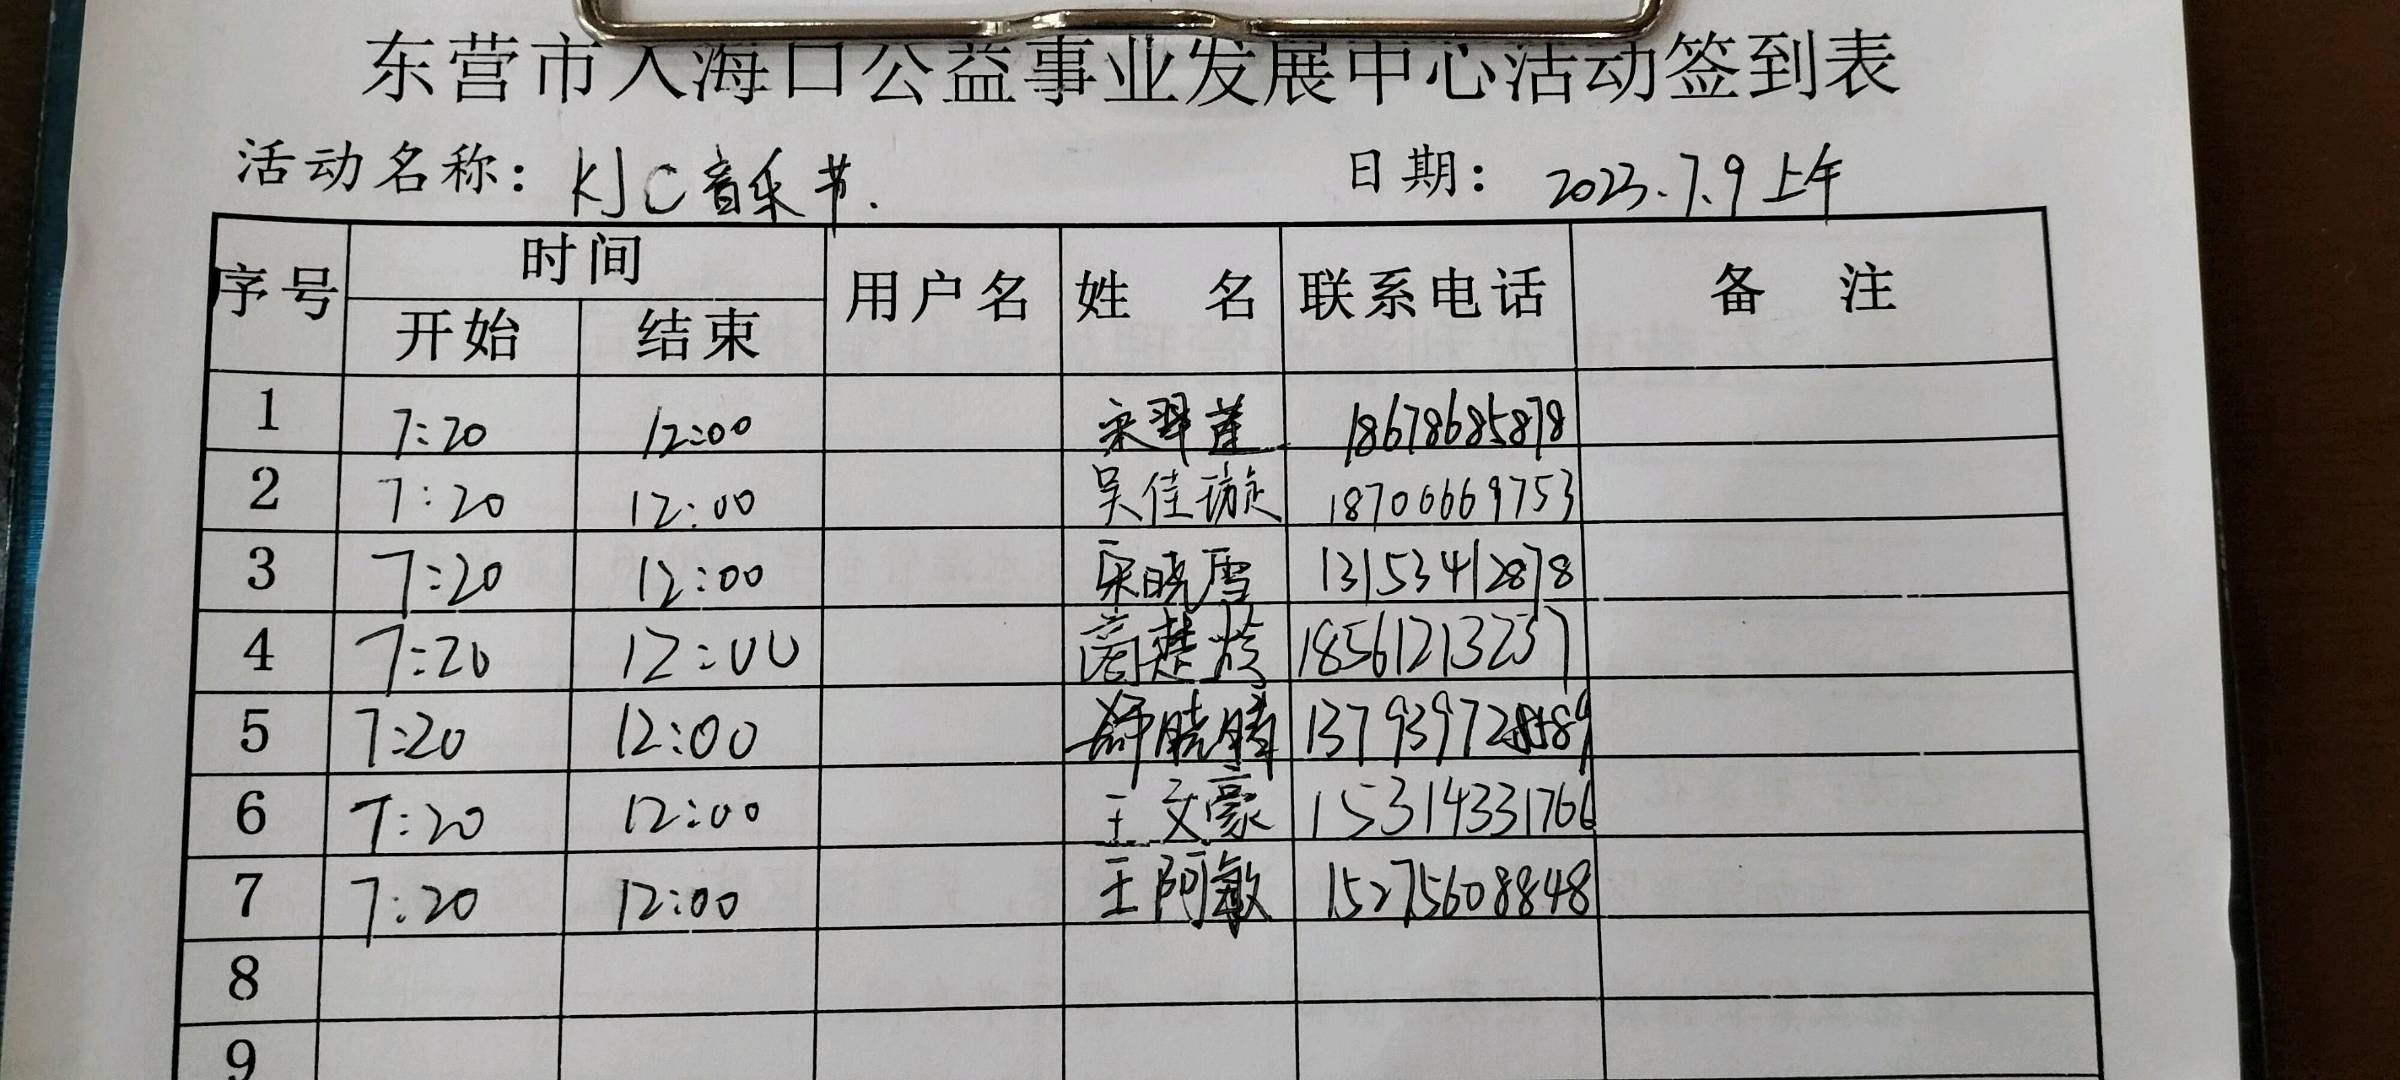 东营市入海口公益事业发展中心活动签到表
活动名称：KJC音乐节. 日期：2023.7.9上午
序号 时间 用户名 姓 名 联系电话 备 注
开始 结束
1 7:20 12:00 宋翠莲 18678685878
2 7:20 12:00 吴佳璇 18706669753
3 7:20 12:00 宋晓雪 13153412878
4 7:20 12:00 18561213257
5 7:20 12:00 舒晓腾
6 7:20 12:00 王文豪 15314331766
7 7:20 12:00 王阿敏 15275608848
8
9